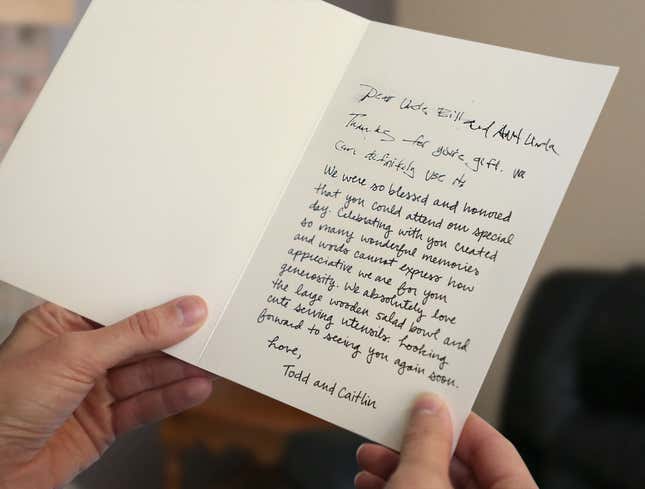 Dear Uncle Bill and Aunt Linda
Thanks for your gift. We
can definitely use it
We were so blessed and honored
that you could attend our special
day. Celebrating with you created
so many wonderful memories
and words cannot express how
appreciative we are for your
generosity. We absolutely love
the large wooden salad bowl and
cute serving utensils. Looking
forward to seeing you again soon.
Love,
Todd and Caitlin